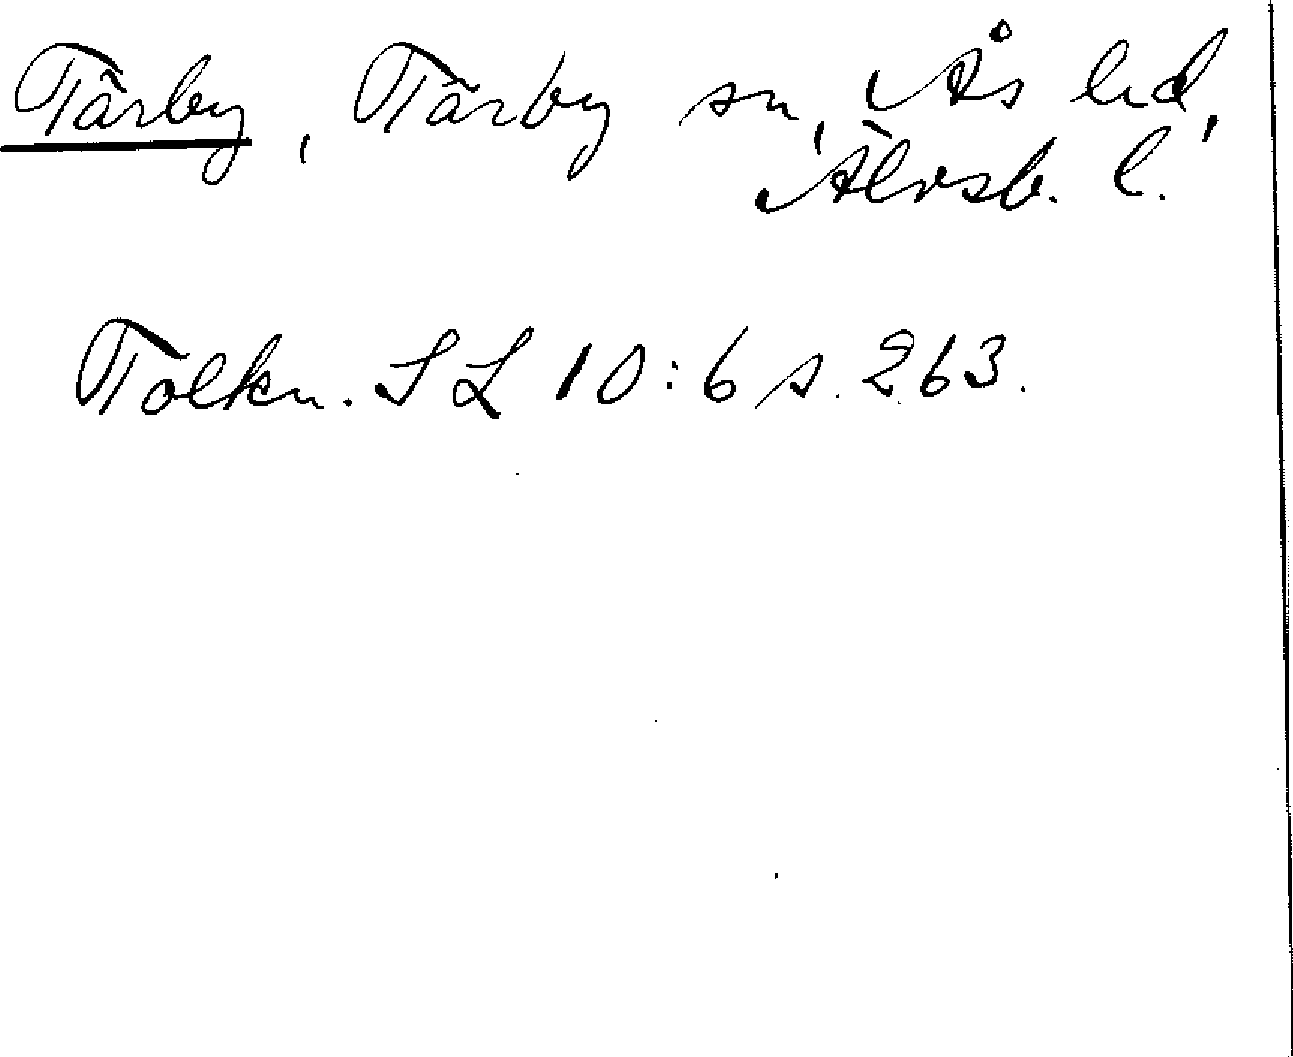 Tärby, Tärby sn, Ås hd,
Älvsb. l.
Tolkn. SL 10:6 s. 263.